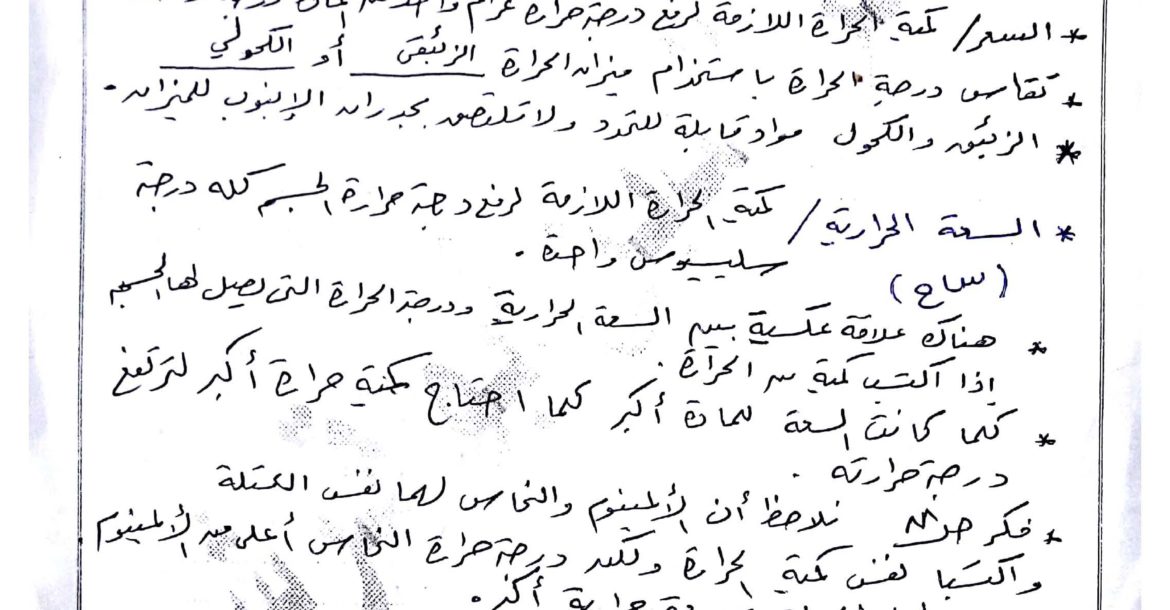 * السعر / كمية الحرارة اللازمة لرفع درجة حرارة غرام واحد من
* تقاس درجة الحرارة باستخدام ميزان الحرارة الزئبقي أو الكحولي
* الزئبق والكحول مواد قابلة للتمدد ولا تلتصق بجدران الإنبوب للميزان .
* السعة الحرارية / كمية الحرارة اللازمة لرفع درجة حرارة الجسم كله درجة
سليسيوس واحدة .
(س ح)
* هناك علاقة عكسية بين السعة الحرارية ودرجة الحرارة التي يصل لها الجسم
إذا اكتسب كمية من الحرارة .
* كلما كانت السعة للمادة أكبر كلما احتاج كمية حرارة أكبر لترتفع
درجة حرارته .
* فكر ص نلاحظ أن الألمينوم والنحاس لهما نفس الكتلة
واكتسبا نفس كمية الحرارة ولكن درجة حرارة النحاس أعلى من الألمينوم
حرارية أكبر .